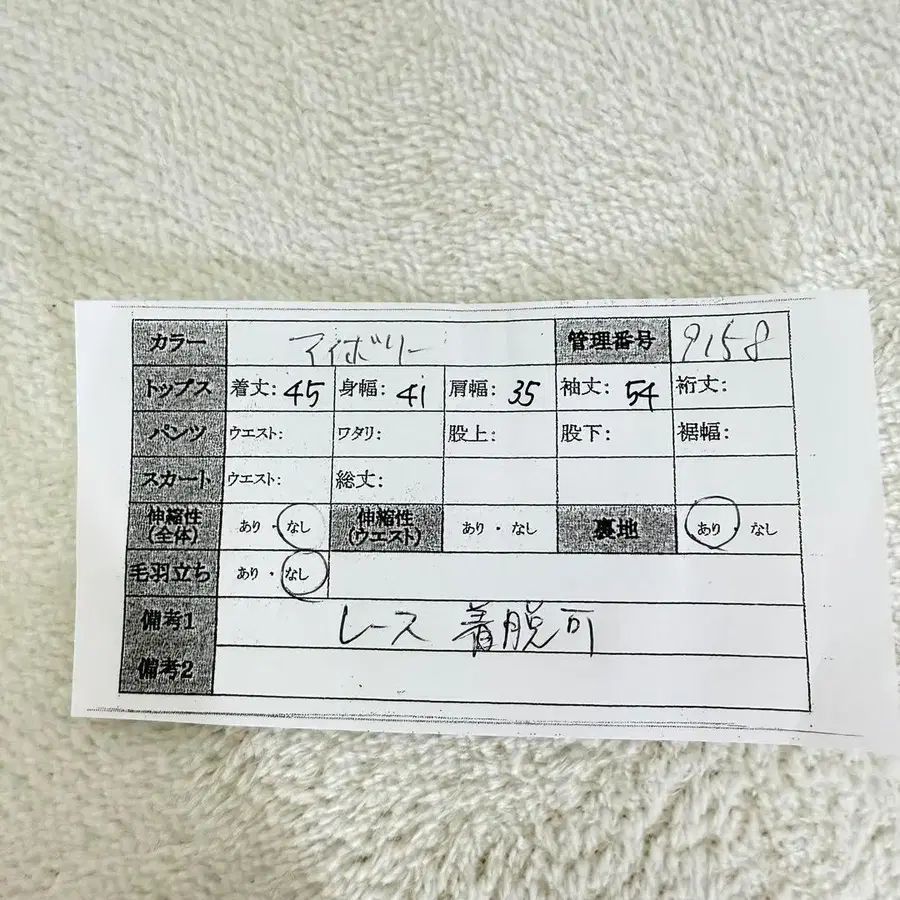 カラー アイボリー 管理番号 9158
トップス 着丈: 45 身幅: 41 肩幅: 35 袖丈: 54 裄丈:
パンツ ウエスト: ワタリ: 股上: 股下: 裾幅:
スカート ウエスト: 総丈:
伸縮性(全体) あり・なし 伸縮性(ウエスト) あり・なし 裏地 あり・なし
毛羽立ち あり・なし
備考1 レース 着脱可
備考2